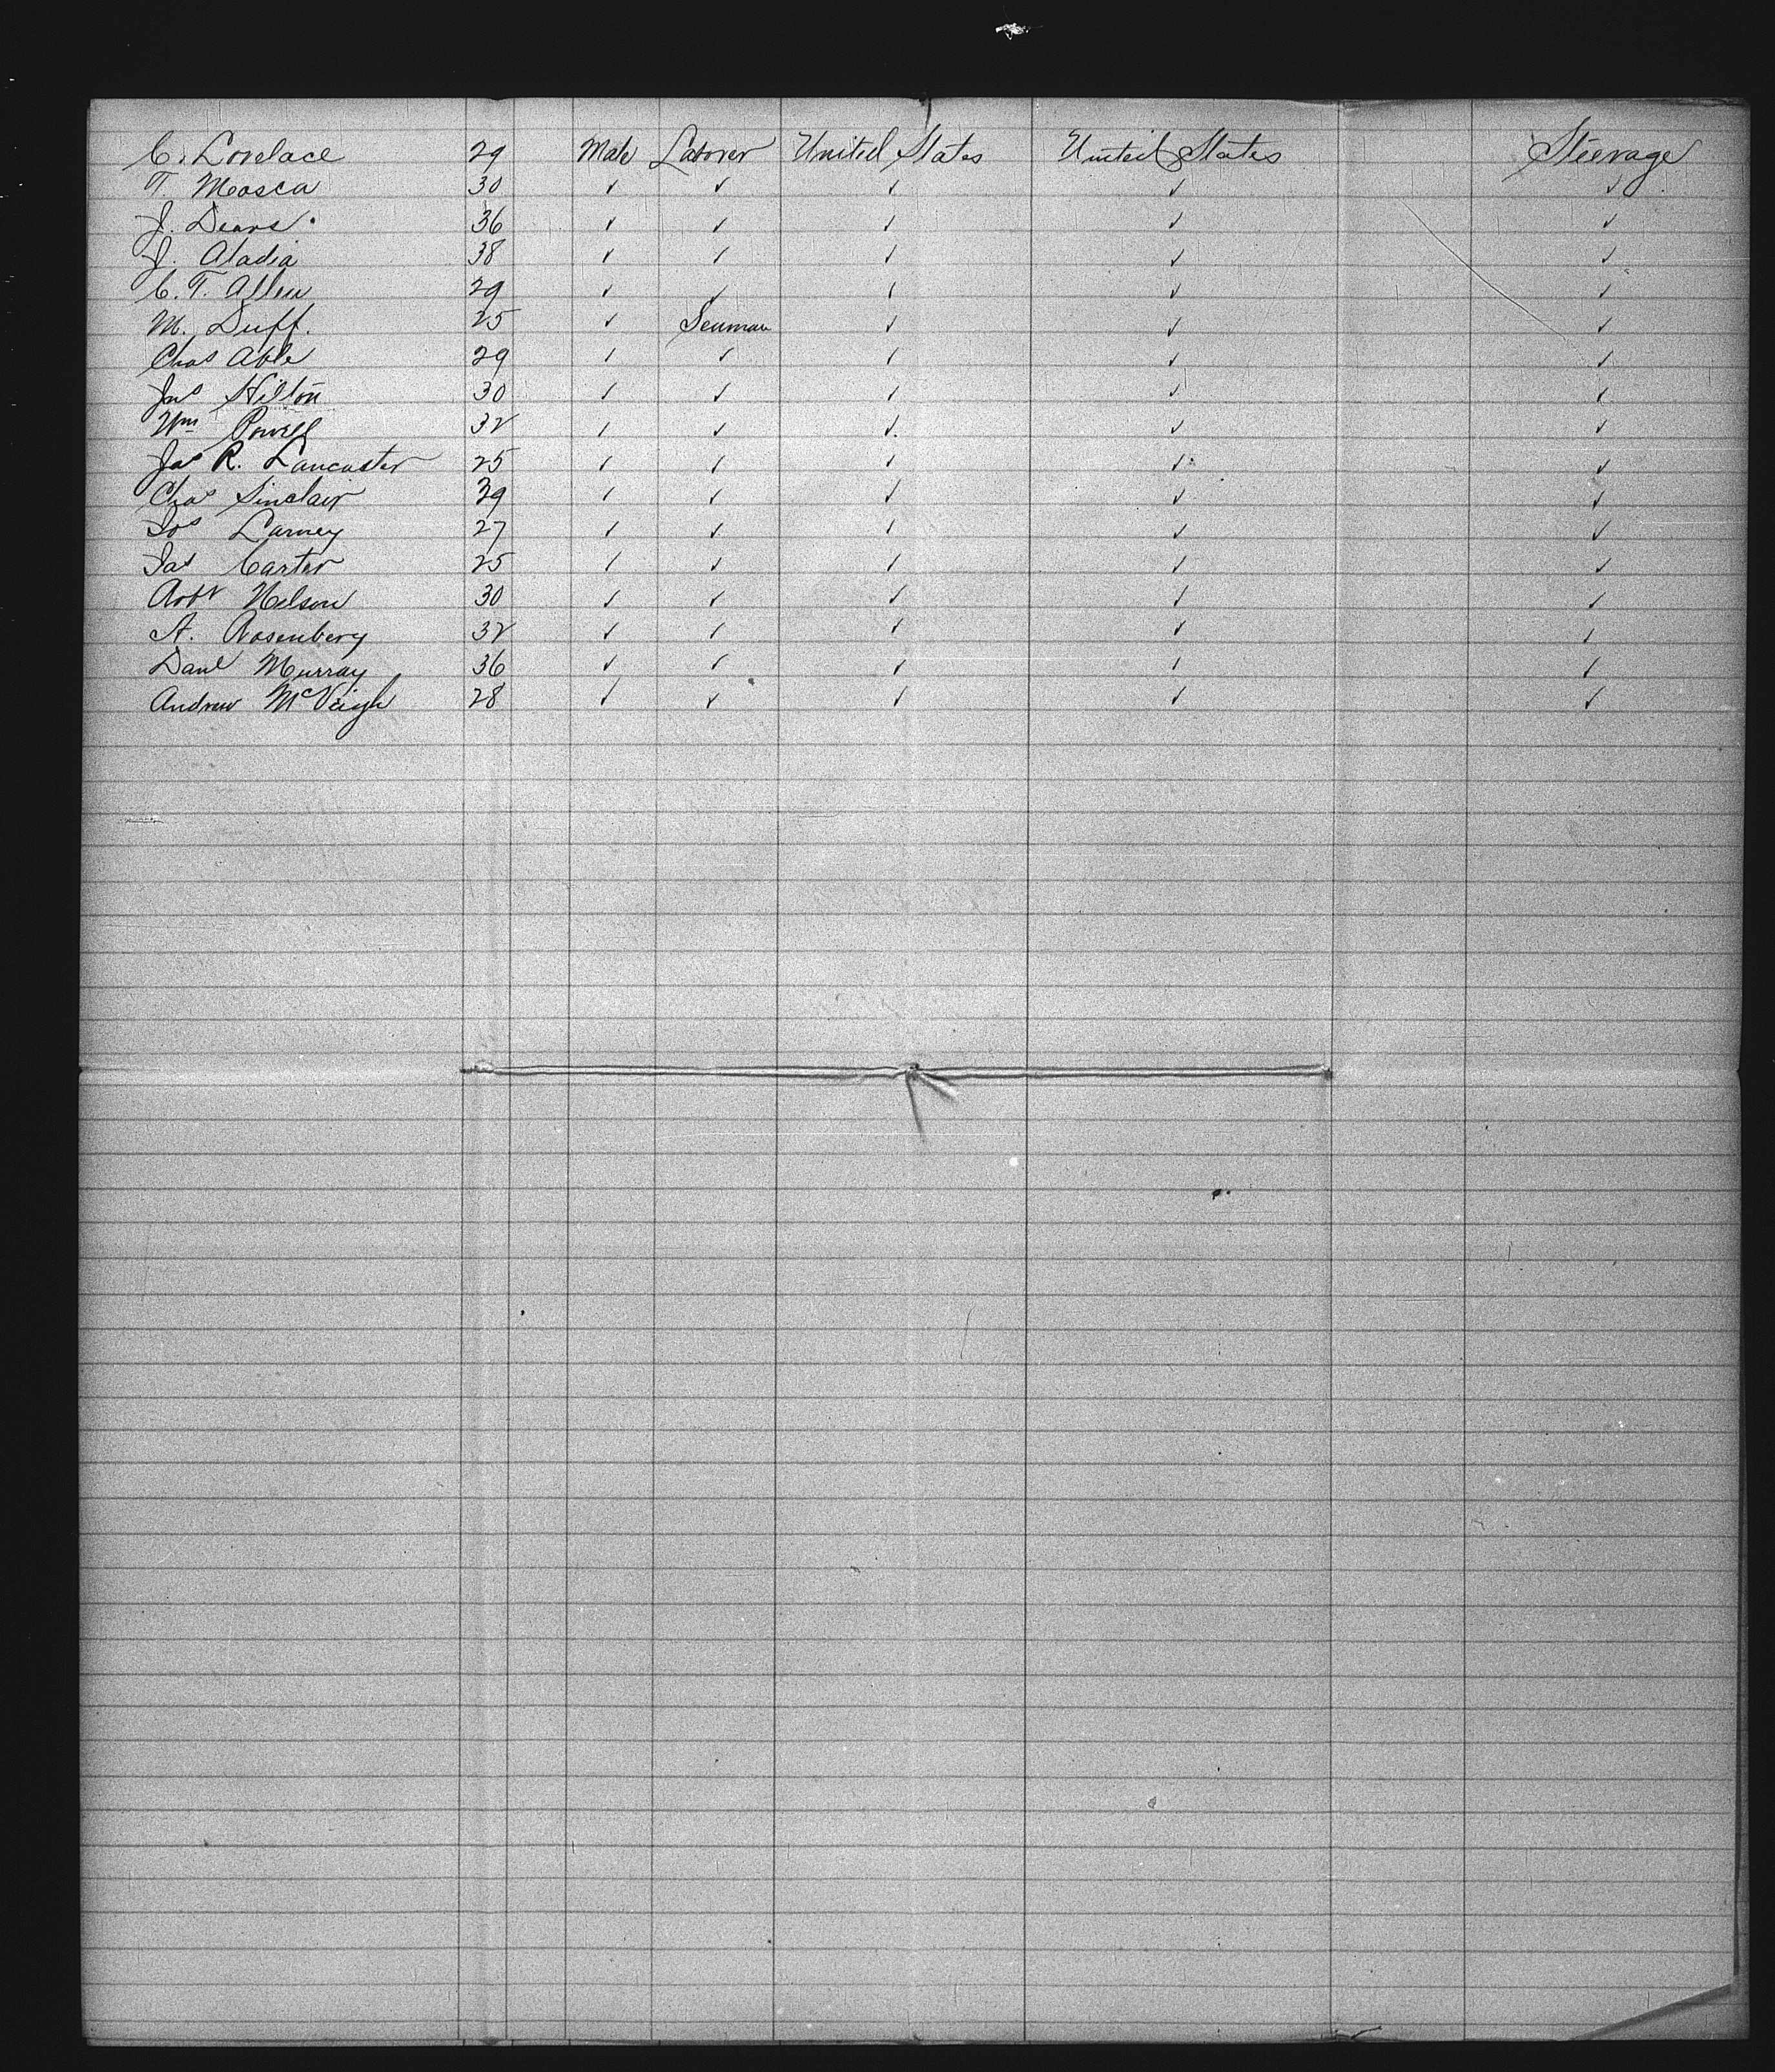 C. Lovelace 29 Male Laborer United States United States Steerage
T. Mosca 30 ✓ ✓ ✓ ✓ ✓
J. Dears 36 ✓ ✓ ✓ ✓ ✓
J. Aladia 38 ✓ ✓ ✓ ✓ ✓
C. T. Allen 29 ✓ ✓ ✓ ✓ ✓
M. Duff. 25 ✓ Seaman ✓ ✓ ✓
Chas Able 29 ✓ ✓ ✓ ✓ ✓
Jno Hilton 30 ✓ ✓ ✓ ✓ ✓
Wm Powell 32 ✓ ✓ ✓ ✓ ✓
Jas R. Lancaster 25 ✓ ✓ ✓ ✓ ✓
Chas Sinclair 39 ✓ ✓ ✓ ✓ ✓
Jos Larney 27 ✓ ✓ ✓ ✓ ✓
Jas Carter 25 ✓ ✓ ✓ ✓ ✓
Robt Nelson 30 ✓ ✓ ✓ ✓ ✓
A. Rosenberg 32 ✓ ✓ ✓ ✓ ✓
Danl Murray 36 ✓ ✓ ✓ ✓ ✓
Andrew McVeigh 28 ✓ ✓ ✓ ✓ ✓